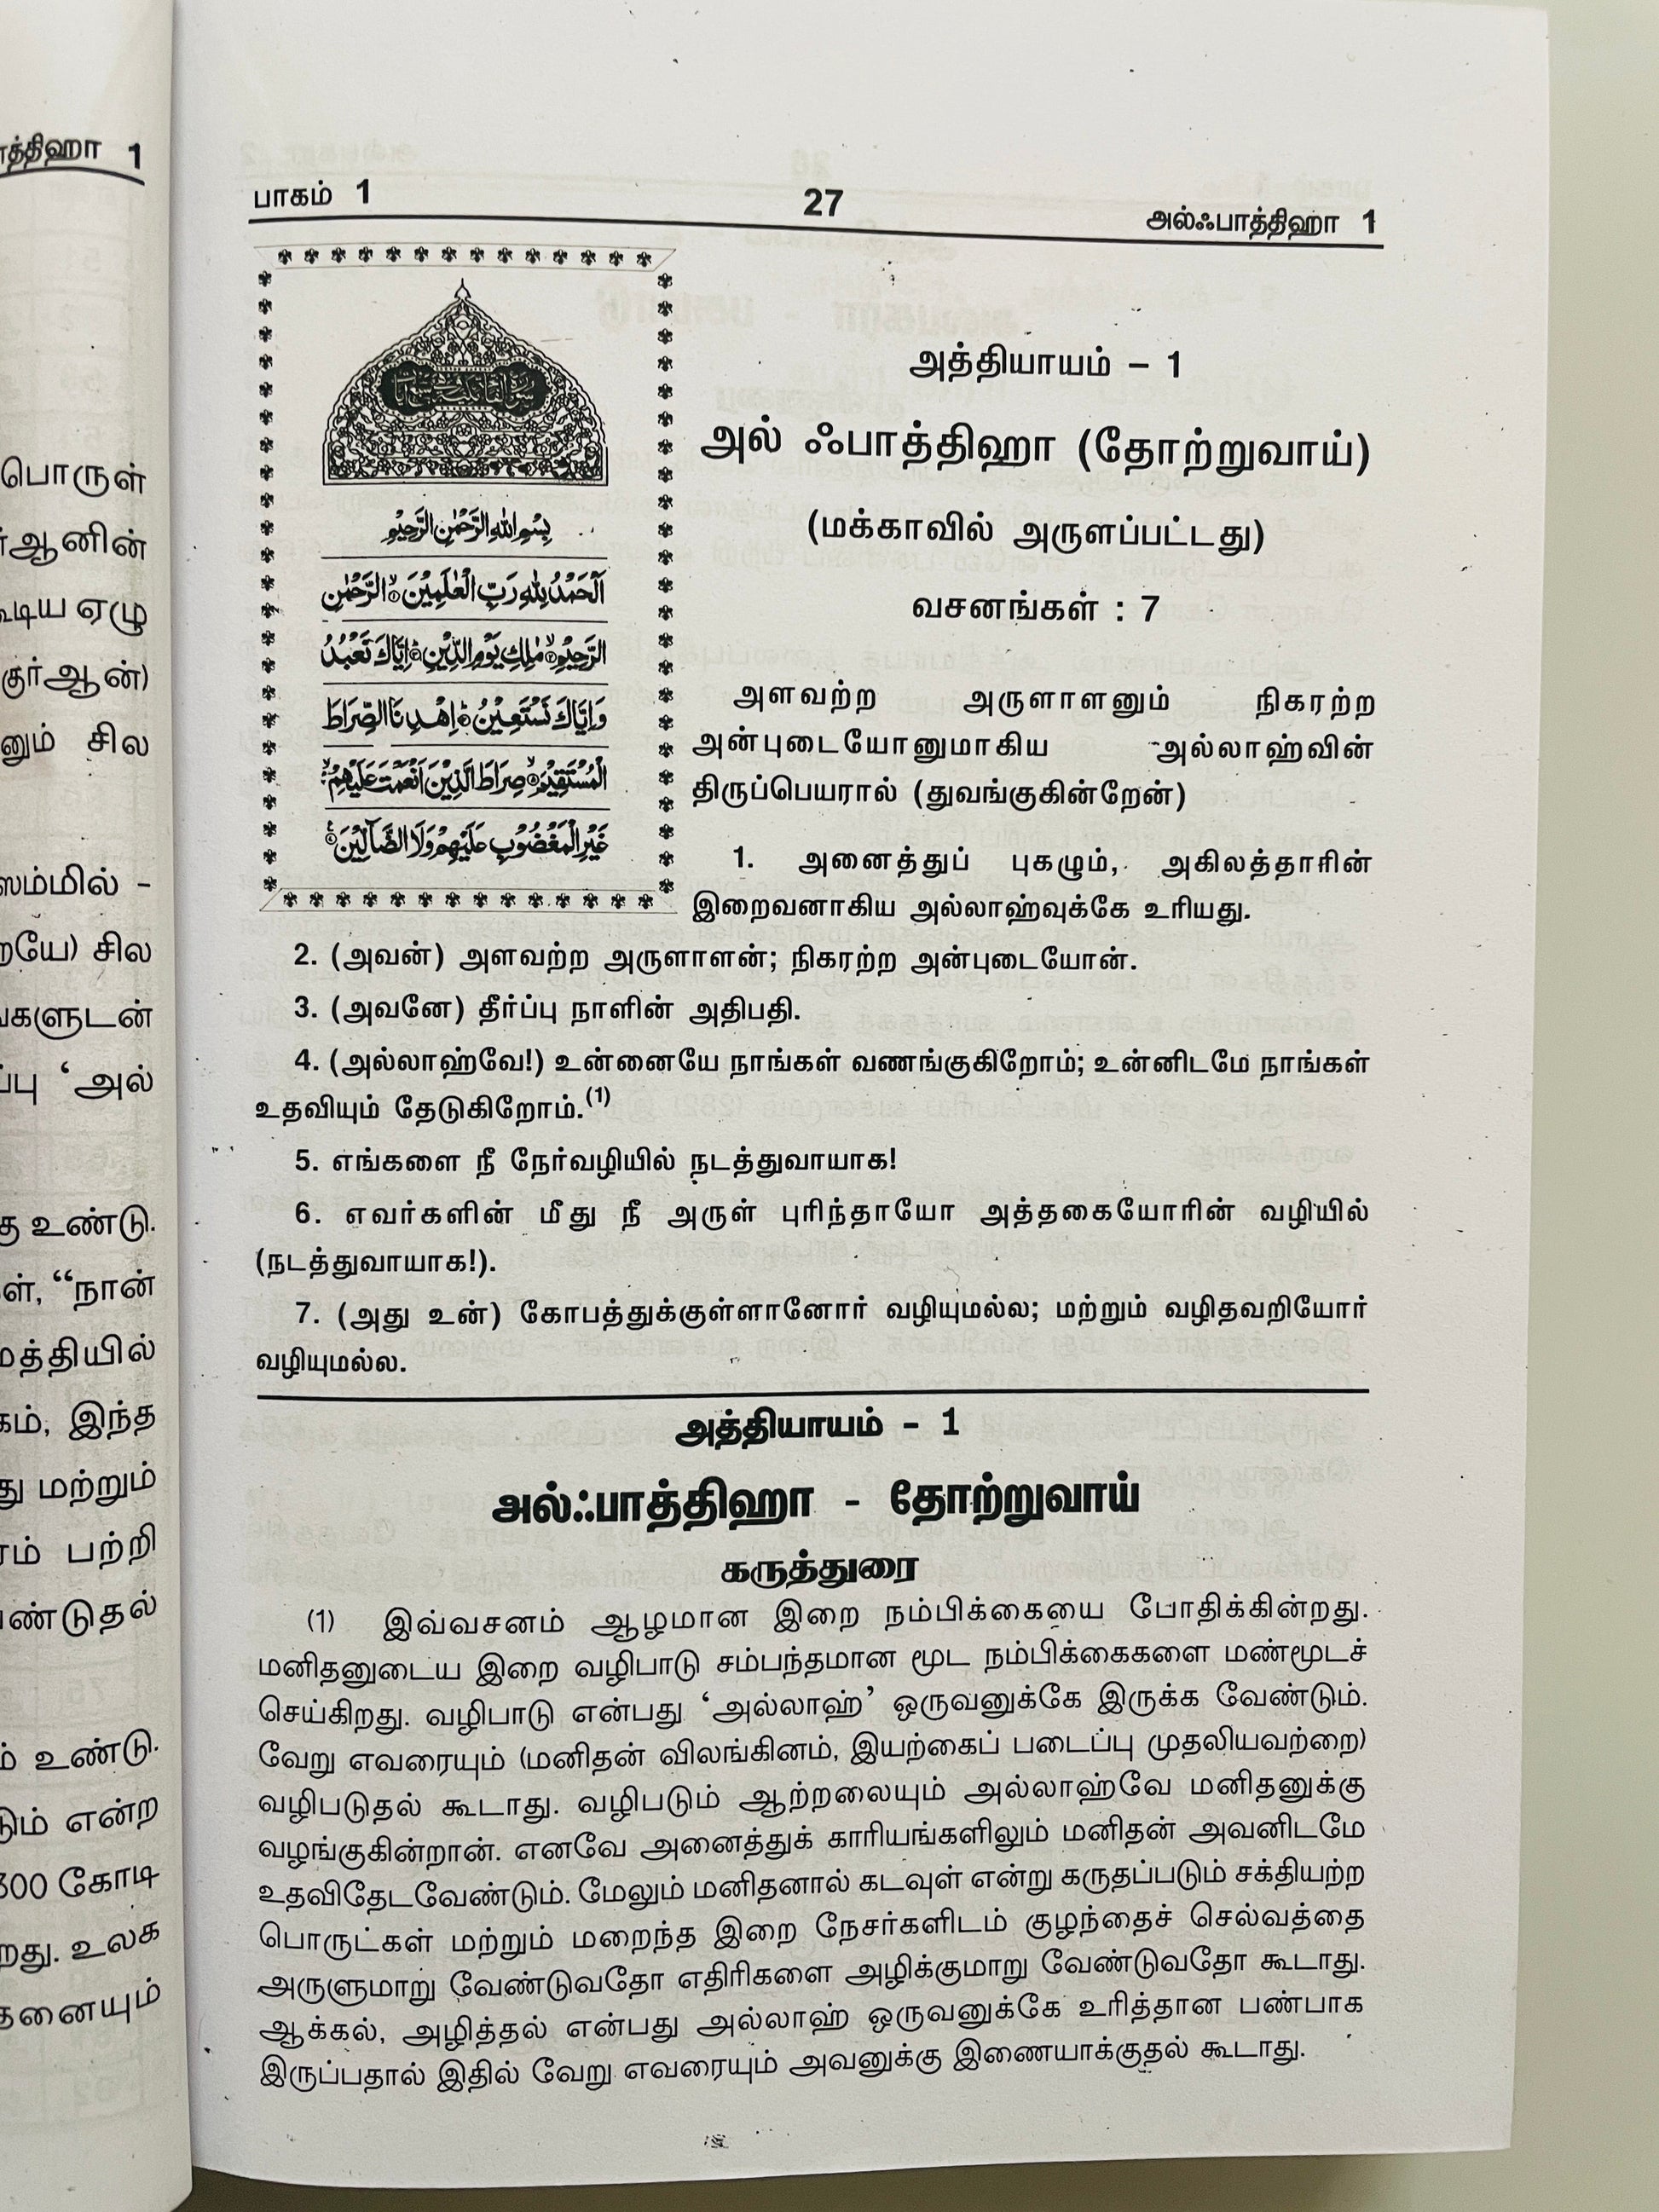 ாத்திஹா 1
பொருள்
ர்ஆனின்
கூடிய ஏழு
குர்ஆன்)
னும் சில
ஸம்மில் -
றயே) சில
ங்களுடன்
ப்பு ‘அல்
த உண்டு.
ள், “நான்
மத்தியில்
கம், இந்த
து மற்றும்
ரம் பற்றி
ண்டுதல்
ம் உண்டு.
டும் என்ற
300 கோடி
றது. உலக
தனையும்
பாகம் 1 27 அல்ஃபாத்திஹா 1
بِسْمِ اللهِ الرَّحْمٰنِ الرَّحِيْمِ
اَلْحَمْدُ لِلّٰهِ رَبِّ الْعٰلَمِيْنَ ۙ الرَّحْمٰنِ
الرَّحِيْمِ ۙ مٰلِكِ يَوْمِ الدِّيْنِ ؕ اِيَّاكَ نَعْبُدُ
وَاِيَّاكَ نَسْتَعِيْنُ ؕ اِهْدِنَا الصِّرَاطَ
الْمُسْتَقِيْمَ ۙ صِرَاطَ الَّذِيْنَ اَنْعَمْتَ عَلَيْهِمْ ۙ
غَيْرِ الْمَغْضُوْبِ عَلَيْهِمْ وَلَا الضَّآلِّيْنَ
அத்தியாயம் – 1
அல் ஃபாத்திஹா (தோற்றுவாய்)
(மக்காவில் அருளப்பட்டது)
வசனங்கள் : 7
அளவற்ற அருளாளனும் நிகரற்ற
அன்புடையோனுமாகிய அல்லாஹ்வின்
திருப்பெயரால் (துவங்குகின்றேன்)
1. அனைத்துப் புகழும், அகிலத்தாரின்
இறைவனாகிய அல்லாஹ்வுக்கே உரியது.
2. (அவன்) அளவற்ற அருளாளன்; நிகரற்ற அன்புடையோன்.
3. (அவனே) தீர்ப்பு நாளின் அதிபதி.
4. (அல்லாஹ்வே!) உன்னையே நாங்கள் வணங்குகிறோம்; உன்னிடமே நாங்கள்
உதவியும் தேடுகிறோம்.(1)
5. எங்களை நீ நேர்வழியில் நடத்துவாயாக!
6. எவர்களின் மீது நீ அருள் புரிந்தாயோ அத்தகையோரின் வழியில்
(நடத்துவாயாக!).
7. (அது உன்) கோபத்துக்குள்ளானோர் வழியுமல்ல; மற்றும் வழிதவறியோர்
வழியுமல்ல.
அத்தியாயம் – 1
அல்ஃபாத்திஹா - தோற்றுவாய்
கருத்துரை
(1) இவ்வசனம் ஆழமான இறை நம்பிக்கையை போதிக்கின்றது.
மனிதனுடைய இறை வழிபாடு சம்பந்தமான மூட நம்பிக்கைகளை மண்மூடச்
செய்கிறது. வழிபாடு என்பது ‘அல்லாஹ்’ ஒருவனுக்கே இருக்க வேண்டும்.
வேறு எவரையும் (மனிதன் விலங்கினம், இயற்கைப் படைப்பு முதலியவற்றை)
வழிபடுதல் கூடாது. வழிபடும் ஆற்றலையும் அல்லாஹ்வே மனிதனுக்கு
வழங்குகின்றான். எனவே அனைத்துக் காரியங்களிலும் மனிதன் அவனிடமே
உதவிதேடவேண்டும். மேலும் மனிதனால் கடவுள் என்று கருதப்படும் சக்தியற்ற
பொருட்கள் மற்றும் மறைந்த இறை நேசர்களிடம் குழந்தைச் செல்வத்தை
அருளுமாறு வேண்டுவதோ எதிரிகளை அழிக்குமாறு வேண்டுவதோ கூடாது.
ஆக்கல், அழித்தல் என்பது அல்லாஹ் ஒருவனுக்கே உரித்தான பண்பாக
இருப்பதால் இதில் வேறு எவரையும் அவனுக்கு இணையாக்குதல் கூடாது.